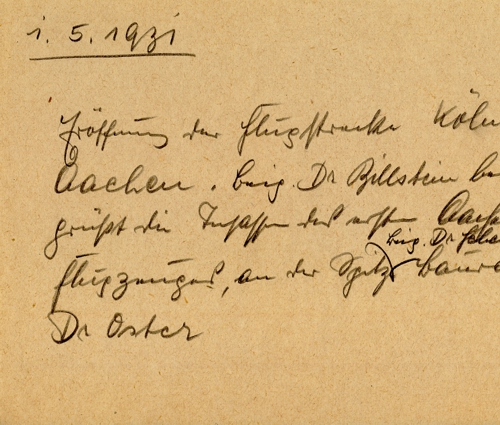 1. 5. 1931
Eröffnung der Flugstrecke Köln
Aachen. beig. Dr Billstein be
grüßt die Insassen des ersten Aach
beig. Dr
Flugzeuges, an der Spitze
Dr Oster